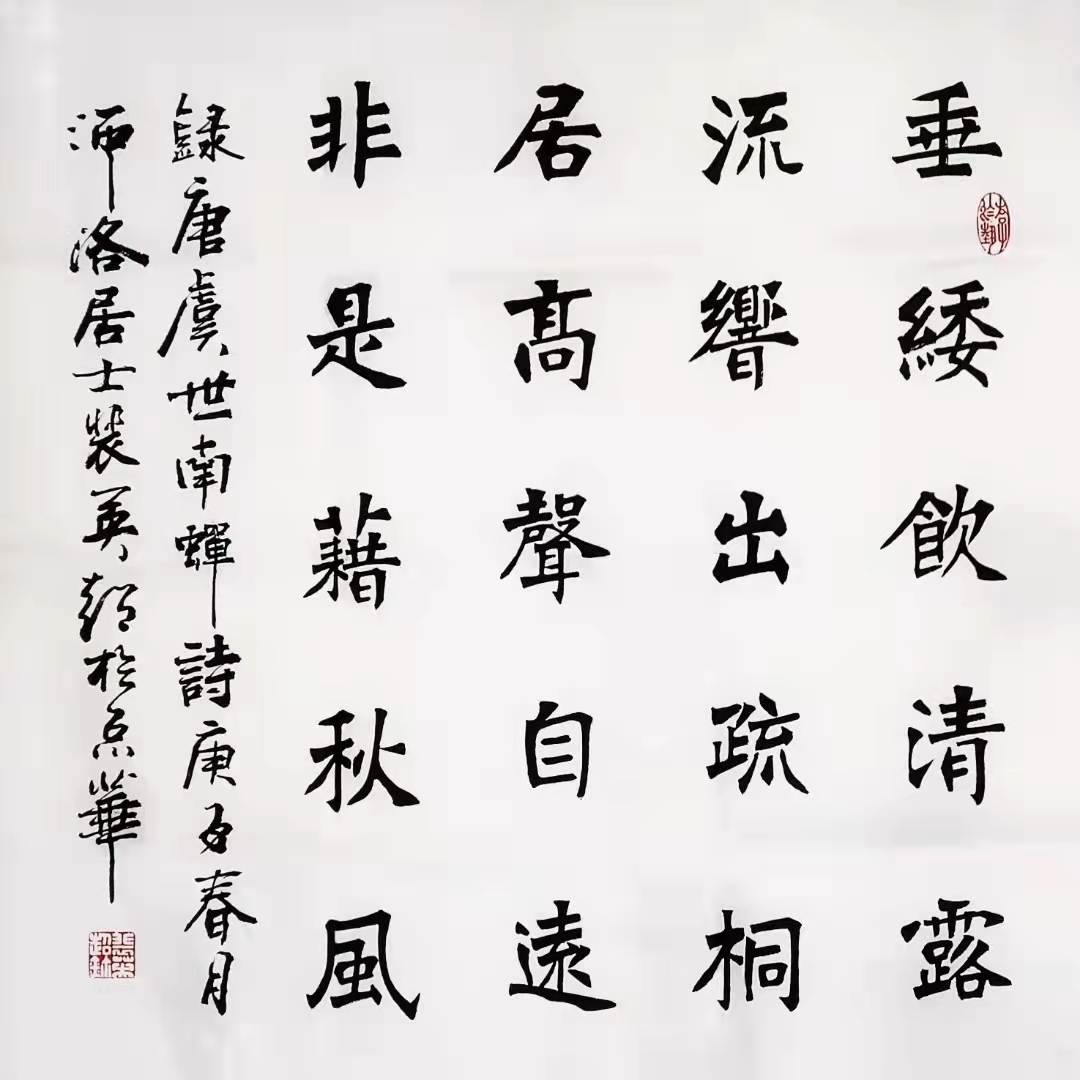 垂緌飲清露
流響出疏桐
居髙聲自遠
非是藉秋風
録唐虞世南蟬詩庚子春月
洛居士裴英超於京華